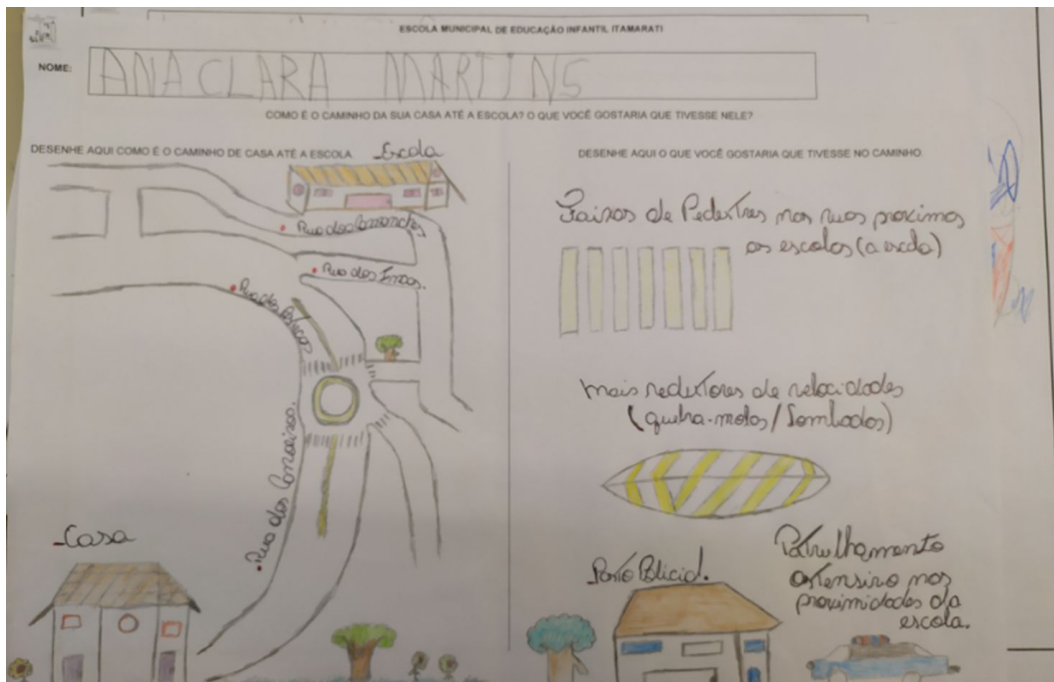 ESCOLA MUNICIPAL DE EDUCAÇÃO INFANTIL ITAMARATI
NOME: ANA CLARA MARTINS
COMO É O CAMINHO DA SUA CASA ATÉ A ESCOLA? O QUE VOCÊ GOSTARIA QUE TIVESSE NELE?
DESENHE AQUI COMO É O CAMINHO DE CASA ATÉ A ESCOLA.
Escola
Rua dos Comanches
Rua dos Incas.
Rua dos
Rua dos
Casa
DESENHE AQUI O QUE VOCÊ GOSTARIA QUE TIVESSE NO CAMINHO
Faixas de Pedestres nas ruas proximas
as escolas (a escola)
mais redutores de velocidades
(quebra-molas / Lombadas)
Posto Policial.
Patrulhamento
ostensivo nas
proximidades da
escola.